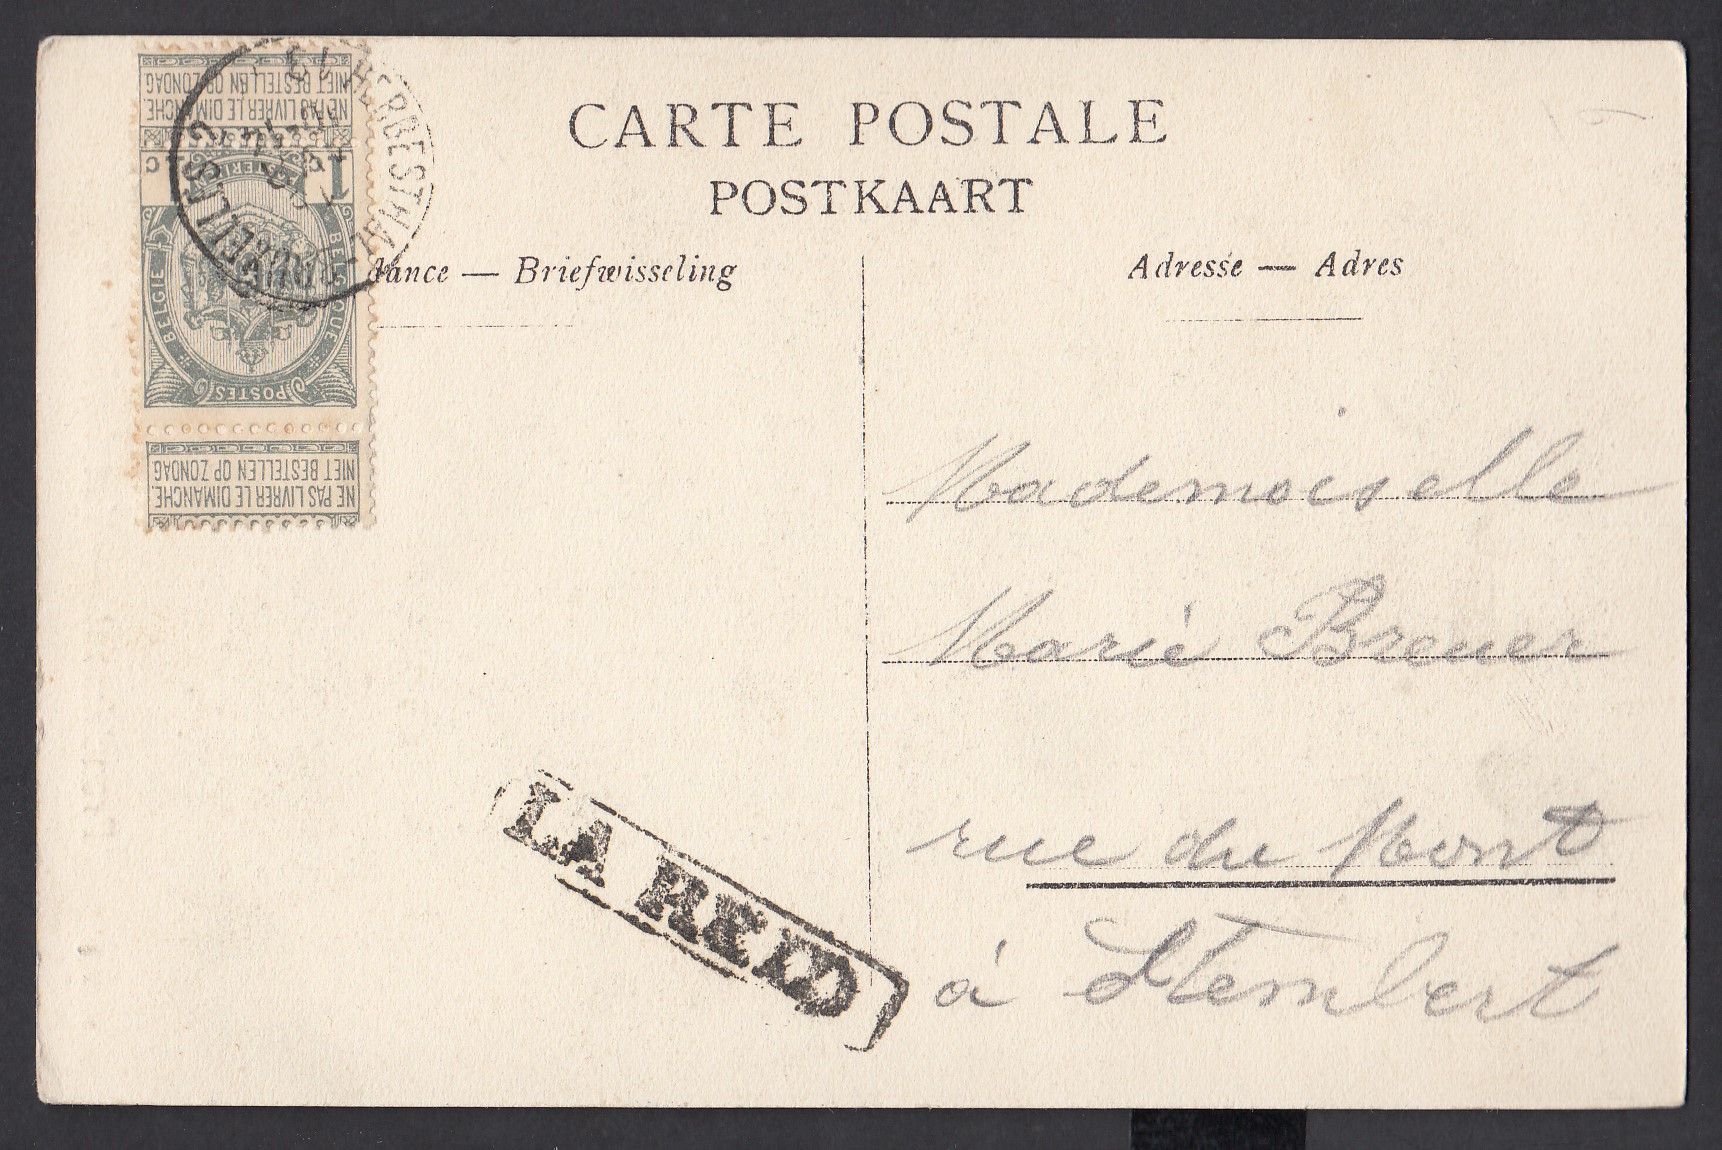 CARTE POSTALE
POSTKAART
dance — Briefwisseling
Adresse — Adres
NE PAS LIVRER LE DIMANCHE.
NIET BESTELLEN OP ZONDAG
POSTES
BELGIE BELGIQUE
1
NE PAS LIVRER LE DIMANCHE.
NIET BESTELLEN OP ZONDAG
HERBESTHAL
BRUXELLES 2
Mademoiselle
Marie Breuer
rue du Mont
à Stembert
LA REID